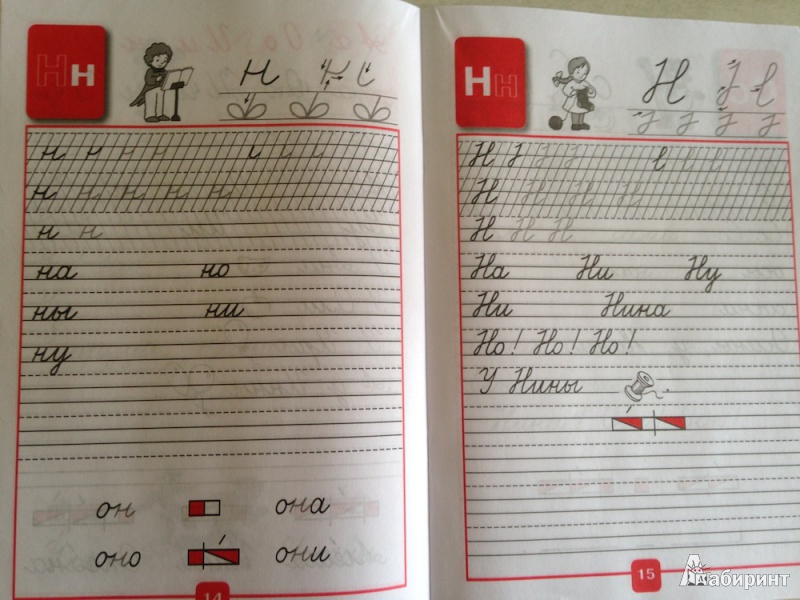 Н н
н
н н н н н
н н н н н н
н н
на но
ны ни
ну
он она
оно они
14
Н н
Н
Н
Н Н Н Н
Н Н Н
На Ни Ну
Ни Нина
Но! Но! Но!
У Нины
15
Лабиринт